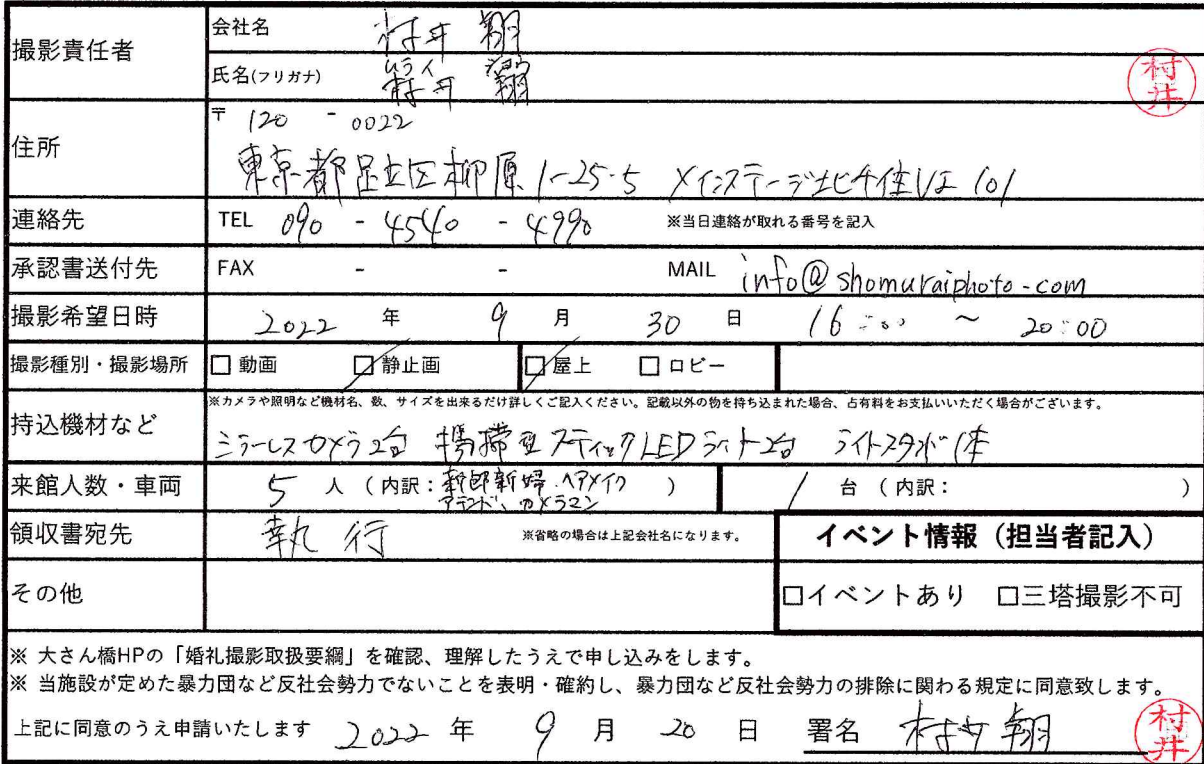 撮影責任者
会社名 村井 翔
氏名(フリガナ) ムライ ショウ
村井 翔
村井
住所
〒 120 - 0022
東京都足立区柳原 1-25-5 メインステージ北千住VI 101
連絡先 TEL 090 - 4540 - 4990 ※当日連絡が取れる番号を記入
承認書送付先 FAX - - MAIL info@shomuraiphoto.com
撮影希望日時 2022 年 9 月 30 日 16:00 ~ 20:00
撮影種別・撮影場所 □ 動画 ☑ 静止画 ☑ 屋上 □ ロビー
持込機材など
※カメラや照明など機材名、数、サイズを出来るだけ詳しくご記入ください。記載以外の物を持ち込まれた場合、占有料をお支払いいただく場合がございます。
ミラーレスカメラ2台 携帯型スティックLEDライト2台 ライトスタンド1本
来館人数・車両 5 人 (内訳: 新郎新婦、ヘアメイク
アテンド、カメラマン )
1 台 (内訳: )
領収書宛先 執行 ※省略の場合は上記会社名になります。
イベント情報(担当者記入)
その他 □イベントあり □三塔撮影不可
※ 大さん橋HPの「婚礼撮影取扱要綱」を確認、理解したうえで申し込みをします。
※ 当施設が定めた暴力団など反社会勢力でないことを表明・確約し、暴力団など反社会勢力の排除に関わる規定に同意致します。
上記に同意のうえ申請いたします 2022 年 9 月 20 日 署名 村井 翔
村井